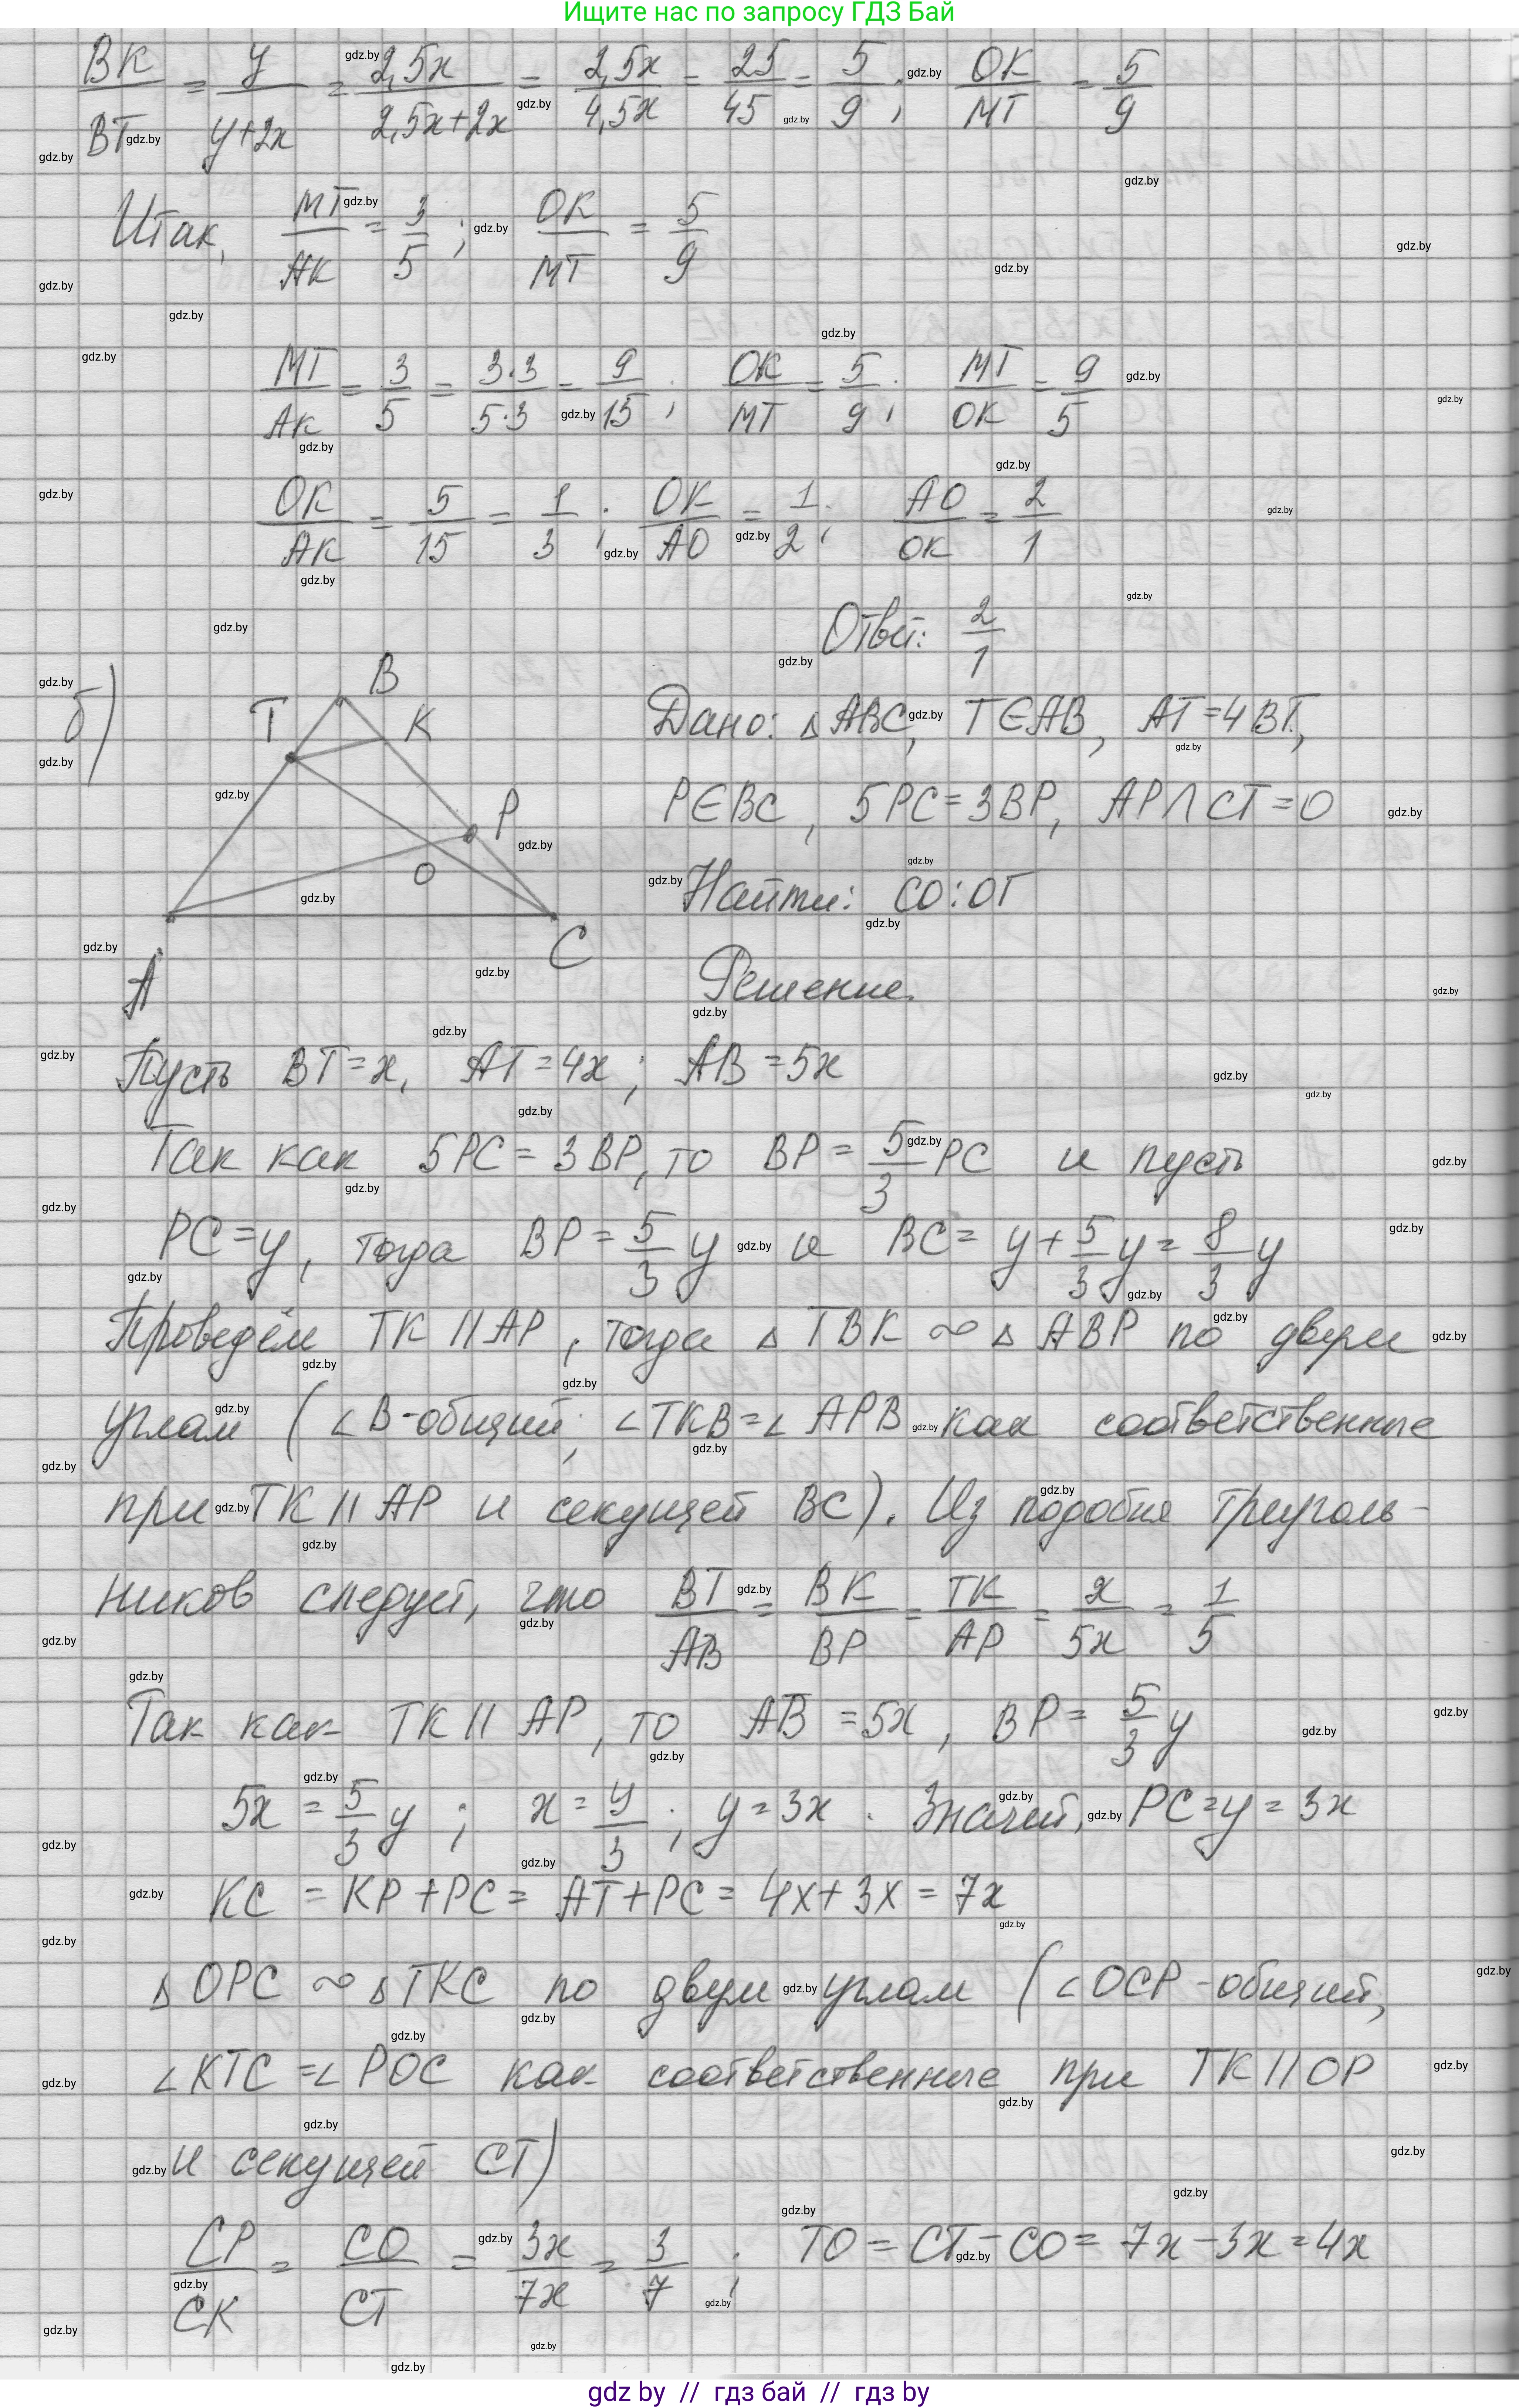 Ищите нас по запросу ГДЗ Бай
BK/BT = y/(y+2x) = 2,5x/(2,5x+2x) = 2,5x/4,5x = 25/45 = 5/9; OK/MT = 5/9
Итак, MT/AK = 3/5; OK/MT = 5/9
MT/AK = 3/5 = 3·3/5·3 = 9/15; OK/MT = 5/9; MT/OK = 9/5
OK/AK = 5/15 = 1/3; OK/AO = 1/2; AO/OK = 2/1
Ответ: 2/1
б)
B
T
K
P
O
A
C
Дано: △ABC, T∈AB, AT=4BT,
P∈BC, 5PC=3BP, AP∩CT=O
Найти: CO:OT
Решение.
Пусть BT=x, AT=4x; AB=5x
Так как 5PC=3BP, то BP=5/3 PC и пусть
PC=y, тогда BP=5/3 y и BC= y+5/3 y= 8/3 y
Проведём TK||AP, тогда △TBK∾△ABP по двум
углам (∠B-общий; ∠TKB=∠APB как соответственные
при TK||AP и секущей BC). Из подобия треуголь-
ников следует, что BT/AB = BK/BP = TK/AP = x/5x = 1/5
Так как TK||AP, то AB=5x, BP= 5/3 y
5x = 5/3 y; x= y/3; y=3x. Значит, PC=y=3x
KC = KP+PC= AT+PC= 4x+3x= 7x
△OPC∾△TKC по двум углам (∠OCP-общий,
∠KTC=∠POC как соответственные при TK||OP
и секущей CT)
CP/CK = CO/CT = 3x/7x = 3/7; TO=CT-CO= 7x-3x=4x
gdz by // гдз бай // gdz by